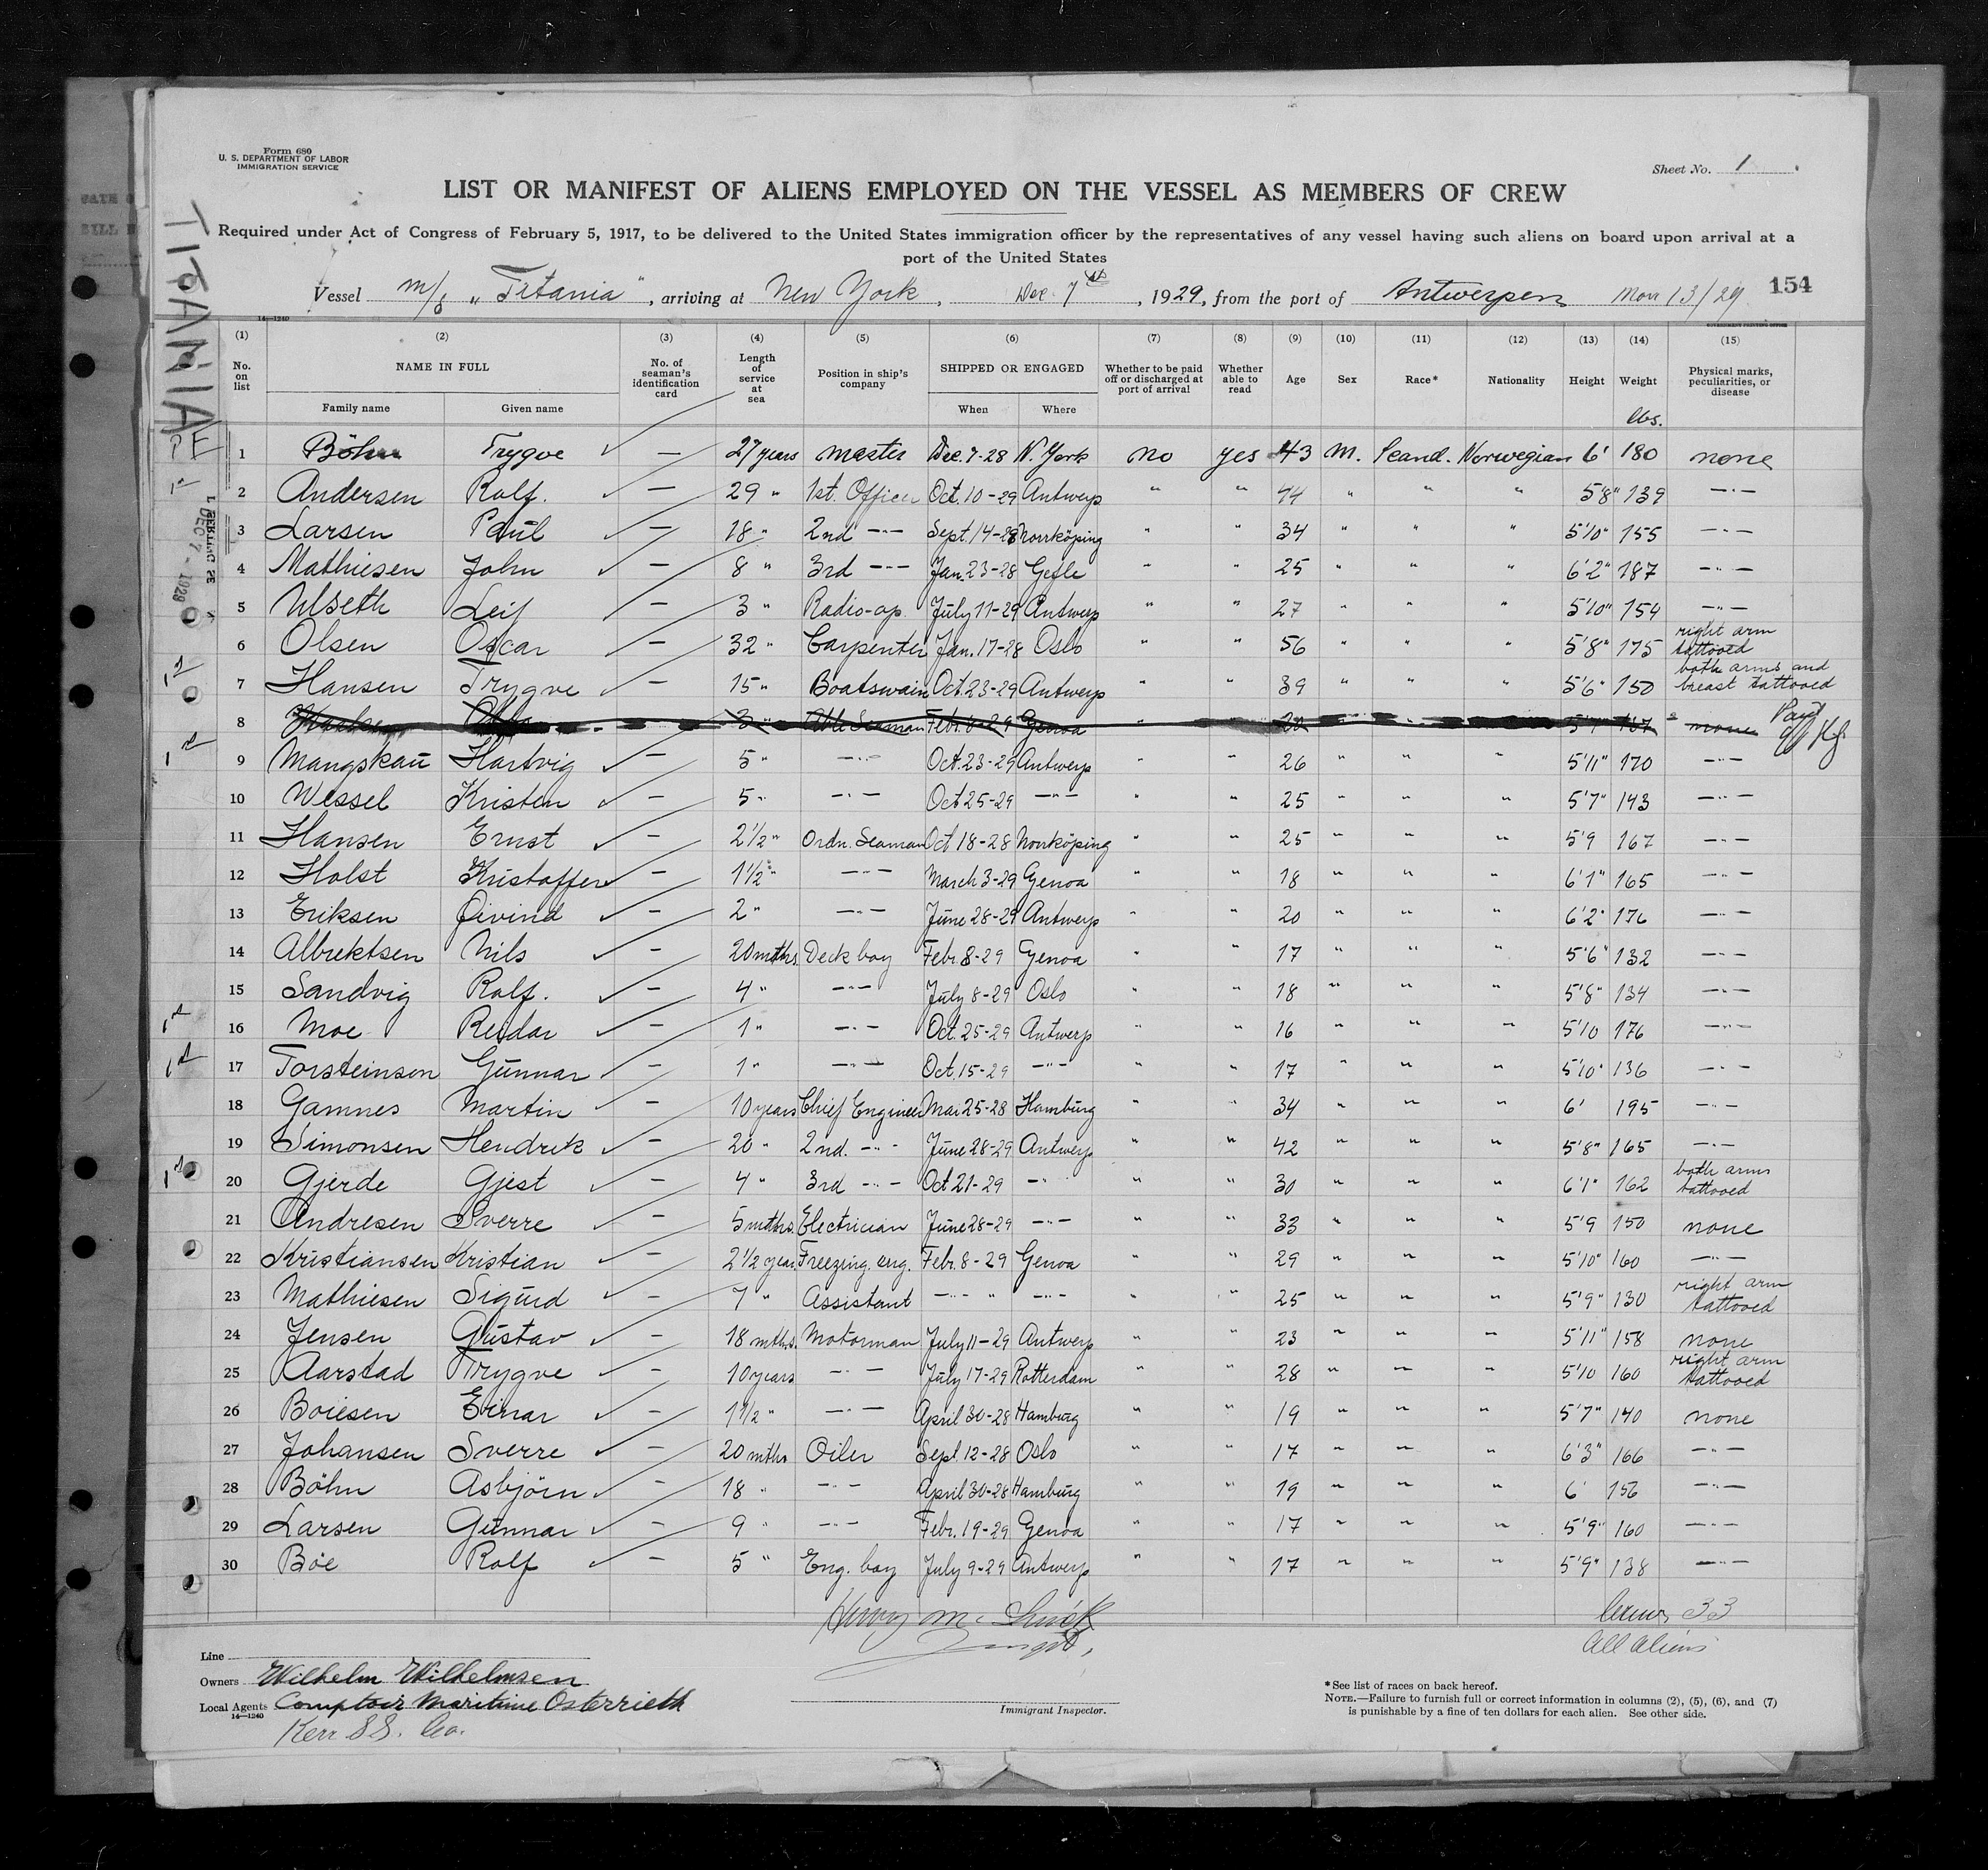 Form 680
U. S. DEPARTMENT OF LABOR
IMMIGRATION SERVICE
Sheet No. 1
LIST OR MANIFEST OF ALIENS EMPLOYED ON THE VESSEL AS MEMBERS OF CREW
Required under Act of Congress of February 5, 1917, to be delivered to the United States immigration officer by the representatives of any vessel having such aliens on board upon arrival at a
port of the United States
Vessel m/s "Titania", arriving at New York, Dec. 7th, 1929, from the port of Antwerpen Nov 13/29 154
TITANIA
DEC 7 - 1929
14—1240
(1) (2) (3) (4) (5) (6) (7) (8) (9) (10) (11) (12) (13) (14) (15)
No. on list NAME IN FULL No. of seaman's identification card Length of service at sea Position in ship's company SHIPPED OR ENGAGED Whether to be paid off or discharged at port of arrival Whether able to read Age Sex Race* Nationality Height Weight Physical marks, peculiarities, or disease
Family name Given name When Where lbs.
1 Böhn Trygve — 27 years Master Dec. 7-28 N. York no yes 43 M. Scand. Norwegian 6' 180 none
2 Andersen Rolf. — 29 " 1st. Officer Oct. 10-29 Antwerp " " 44 " " " 5'8" 139 —"—
3 Larsen Paul — 18 " 2nd —"— Sept. 14-28 Norrköping " " 34 " " " 5'10" 155 —"—
4 Mathiesen John — 8 " 3rd —"— Jan. 23-28 Gefle " " 25 " " " 6'2" 187 —"—
5 Ulseth Leif — 3 " Radio-op. July 11-29 Antwerp " " 27 " " " 5'10" 154 —"—
6 Olsen Oscar — 32 " Carpenter Jan. 17-28 Oslo " " 56 " " " 5'8" 175 right arm tattooed
7 Hansen Trygve — 15 " Boatswain Oct. 23-29 Antwerp " " 39 " " " 5'6" 150 both arms and breast tattooed
8 3 " Able Seaman Febr. 8-29 Genoa " 20 5'7" 167 none
9 Mangskau Hartvig — 5 " —"— Oct. 23-29 Antwerp " " 26 " " " 5'11" 170 —"—
10 Wessel Kristen — 5 " —"— Oct 25-29 —"— " " 25 " " " 5'7" 143 —"—
11 Hansen Ernst — 2 1/2 " Ordn. Seaman Oct 18-28 Norrköping " " 25 " " " 5'9 167 —"—
12 Holst Kristoffer — 1 1/2 " —"— March 3-29 Genoa " " 18 " " " 6'1" 165 —"—
13 Eriksen Øivind — 2 " —"— June 28-29 Antwerp " " 20 " " " 6'2" 176 —"—
14 Albrektsen Nils — 20 mths. Deck boy Febr. 8-29 Genoa " " 17 " " " 5'6" 132 —"—
15 Sandvig Rolf. — 4 " —"— July 8-29 Oslo " " 18 " " " 5'8" 134 —"—
16 Moe Reidar — 1 " —"— Oct. 25-29 Antwerp " " 16 " " " 5'10 176 —"—
17 Torsteinson Gunnar — 1 " —"— Oct. 15-29 —"— " " 17 " " " 5'10" 136 —"—
18 Gamnes Martin — 10 years Chief Engineer Mai 25-28 Hamburg " " 34 " " " 6' 195 —"—
19 Simonsen Hendrik — 20 " 2nd. —"— June 28-29 Antwerp " " 42 " " " 5'8" 165 —"—
20 Gjerde Gjest — 4 " 3rd —"— Oct 21-29 —"— " " 30 " " " 6'1" 162 both arms tattooed
21 Andresen Sverre — 5 mths. Electrician June 28-29 —"— " " 33 " " " 5'9 150 none
22 Kristiansen Kristian — 2 1/2 year. Freezing eng. Febr. 8-29 Genoa " " 29 " " " 5'10" 160 —"—
23 Mathiesen Sigurd — 7 " Assistant —"— " —"— " " 25 " " " 5'9" 130 right arm tattooed
24 Jensen Gustav — 18 mths. Motorman July 11-29 Antwerp " " 23 " " " 5'11" 158 none
25 Aarstad Trygve — 10 years —"— July 17-29 Rotterdam " " 28 " " " 5'10 160 right arm tattooed
26 Boiesen Einar — 1 1/2 " —"— April 30-28 Hamburg " " 19 " " " 5'7" 140 none
27 Johansen Sverre — 20 mths Oiler Sept. 12-28 Oslo " " 17 " " " 6'3" 166 —"—
28 Böhn Asbjörn — 18 " —"— April 30-28 Hamburg " " 19 " " " 6' 156 —"—
29 Larsen Gunnar — 9 " —"— Febr. 19-29 Genoa " " 17 " " " 5'9" 160 —"—
30 Böe Rolf — 5 " Eng. boy July 9-29 Antwerp " " 17 " " " 5'9" 138 —"—
Crew 33
All aliens
Line
Owners Wilhelm Wilhelmsen
Local Agents Comptoir Maritime Osterrieth
14—1240
Kerr SS. Co.
Immigrant Inspector.
*See list of races on back hereof.
NOTE.—Failure to furnish full or correct information in columns (2), (5), (6), and (7)
is punishable by a fine of ten dollars for each alien. See other side.